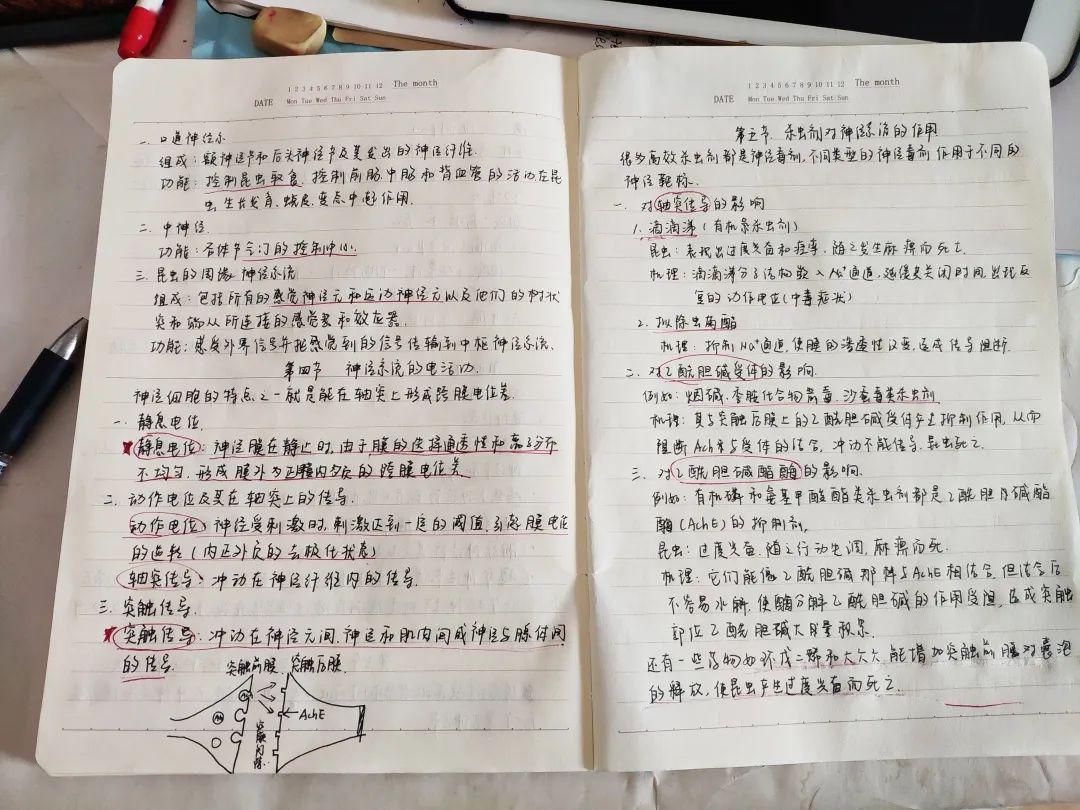 1 2 3 4 5 6 7 8 9 10 11 12 The month
DATE Mon Tue Wed Thu Fri Sat Sun
一. 口道神经系
组成: 额神经节和后头神经节及其发出的神经纤维.
功能: 控制昆虫取食. 控制前肠中肠和背血管的活动. 在昆
虫生长发育、蜕皮、变态中起作用.
二. 中神经.
功能: 各体节气门的控制中心.
三. 昆虫的周缘神经系统
组成: 包括所有的感觉神经元和运动神经元以及他们的树状
突和轴丛所连接的感觉器和效应器.
功能: 感受外界信号并把感觉到的信号传输到中枢神经系统.
第四节 神经系统的电活动.
神经细胞的特点之一就是能在轴突上形成跨膜电位差.
一. 静息电位.
静息电位: 神经膜在静止时, 由于膜的选择通透性和离子分布
不均匀. 形成膜外为正膜内为负的跨膜电位差
二. 动作电位及其在轴突上的传导
动作电位: 神经受刺激时, 刺激达到一定的阈值, 引起膜电位
的逆转 (内正外负的去极化状态)
轴突传导: 冲动在神经纤维内的传导.
三. 突触传导
突触传导: 冲动在神经元间、神经和肌肉间或神经与腺体间
的传导.
突触前膜 突触后膜
AchE
突触间隙
1 2 3 4 5 6 7 8 9 10 11 12 The month
DATE Mon Tue Wed Thu Fri Sat Sun
第五节. 杀虫剂对神经系统的作用
很多高效杀虫剂都是神经毒剂, 不同类型的神经毒剂作用于不同的
神经靶标.
一. 对轴突传导的影响
1. 滴滴涕 (有机氯杀虫剂)
昆虫: 表现出过度兴奋和痉挛, 随之发生麻痹而死亡.
机理: 滴滴涕分子结构嵌入Na⁺通道, 延缓其关闭时间, 出现反
复的动作电位 (中毒症状)
2. 拟除虫菊酯
机理: 抑制Na⁺通道, 使膜的渗透性改变, 造成传导阻断.
二. 对乙酰胆碱受体的影响.
例如: 烟碱、季胺化合物箭毒、沙蚕毒类杀虫剂
机理: 其与突触后膜上的乙酰胆碱受体产生抑制作用, 从而
阻断Ach与受体的结合. 冲动不能传导. 昆虫死亡.
三. 对乙酰胆碱酯酶的影响.
例如: 有机磷和氨基甲酸酯类杀虫剂都是乙酰胆碱酯
酶 (AchE) 的抑制剂.
昆虫: 过度兴奋. 随之行动失调, 麻痹而死.
机理: 它们能像乙酰胆碱那样与AchE相结合. 但结合后
不容易水解, 使酶分解乙酰胆碱的作用受阻, 造成突触
部位乙酰胆碱大量积累.
还有一些药物如环戊二烯和六六六能增加突触前膜对囊泡
的解放, 使昆虫产生过度兴奋而死亡.